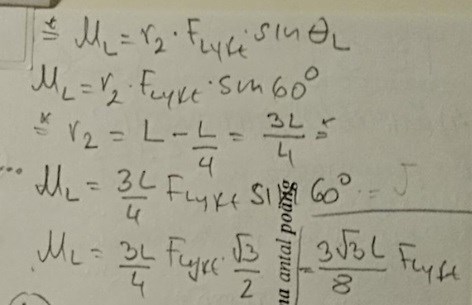 * M_L = r_2 · F_Lyft · sin θ_L
M_L = r_2 · F_Lyft · sin 60°
* r_2 = L - L/4 = 3L/4 *
... M_L = 3L/4 F_Lyft sin 60° =
M_L = 3L/4 F_Lyft · √3/2 = 3√3L/8 F_Lyft
antal poäng